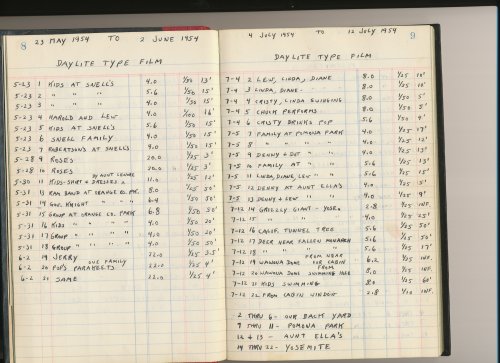 8 23 MAY 1954 TO 2 JUNE 1954
DAYLITE TYPE FILM
5-23 1 KIDS AT SNELL'S 4.0 1/50 13'
5-23 2 " " " 5.6 1/50 15'
5-23 3 " " " 4.0 1/50 15'
5-23 4 HAROLD AND LEW 4.0 1/100 16'
5-23 5 KIDS AT SNELL'S 5.6 1/50 15'
5-23 6 SNELL FAMILY 4.0 1/50 15'
5-23 7 ROBERTSONS AT SNELL'S 4.0 1/50 15'
5-28 9 ROSES 20.0 1/25 3'
5-28 10 ROSES 20.0 1/25 3'
BY AUNT LENORE
5-30 11 KIDS-SHIRT & DRESSES 11.0 1/25 12'
5-31 13 RAN BAND AT ORANGE CO. PK. 8.0 1/25 50'
5-31 14 GOV. KNIGHT " " " 6.4 1/50 50'
5-31 15 GROUP AT ORANGE CO. PARK 6.8 1/50 50'
5-31 16 KIDS " " " " 4.0 1/50 20'
5-31 17 GROUP " " " " 4.0 1/50 20'
5-31 18 GROUP " " " " 4.0 1/50 50'
6-2 19 JERRY 22.0 1/25 3.5'
OUR FAMILY
6-2 20 POP'S PARAKEETS 22.0 1/25 4'
6-2 21 SAME 22.0 1/25 4'
4 JULY 1954 TO 12 JULY 1954 9
DAYLITE TYPE FILM
7-4 2 LEW, LINDA, DIANE 8.0 1/25 10'
7-4 3 LINDA, DIANE 8.0 1/50 10'
7-4 4 CRISTY, LINDA SWINGING 8.0 1/50 5'
7-4 5 CHUCK PERFORMS 8.0 1/50 8'
7-4 6 CRISTY DRINKS POP 5.6 1/50 4'
7-5 7 FAMILY AT POMONA PARK 4.0 1/25 17'
7-5 8 " " " " 4.0 1/25 12'
7-5 9 DENNY & DOT " " 4.0 1/25 13'
7-5 10 FAMILY AT " " 5.6 1/25 13'
7-5 11 LINDA, DIANE, LEW " " 5.6 1/25 15'
7-5 12 DENNY AT AUNT ELLA'S 4.0 1/25
7-5 13 DENNY & LEW " " " 4.0 1/25 9'
7-12 14 GRIZZLY GIANT - YOSE. 2.8 1/25 INF.
7-12 15 " " " 4.0 1/25 INF.
7-12 16 CALIF. TUNNEL TREE 5.6 1/25 50'
7-12 17 DEER NEAR FALLEN MONARCH 5.6 1/25 50'
7-12 18 " " " " 5.6 1/25 17'
FROM NEAR
7-12 19 WAWONA DOME OUR CABIN 6.2 1/25 INF.
FROM
7-12 20 WAWONA DOME SWIMMING HOLE 8.0 1/25 INF.
7-12 21 KIDS SWIMMING 8.0 1/25 60'
7-12 22 FROM CABIN WINDOW 2.8 1/10 INF.
2 THRU 6 - OUR BACK YARD
7 THRU 11 - POMONA PARK
12 & 13 - AUNT ELLA'S
14 THRU 22 - YOSEMITE